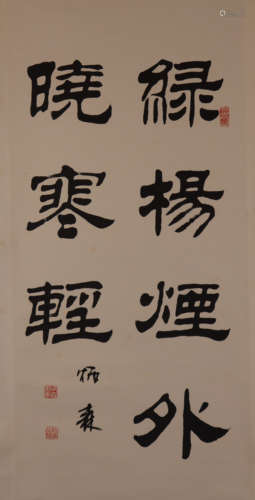 緑楊煙外
曉寒輕
炳森